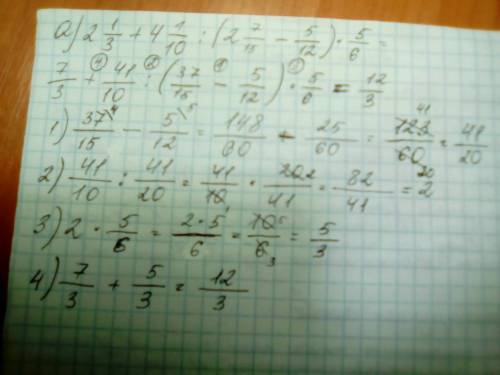 а) 2 1/3 + 4 1/10 : (2 7/15 - 5/12) · 5/6 =
7/3 + 41/10 : (37/15 - 5/12) · 5/6 = 12/3
1) 37/15 - 5/12 = 148/60 - 25/60 = 123/60 = 41/20
2) 41/10 : 41/20 = 41/10 · 20/41 = 82/41 = 2
3) 2 · 5/6 = 2·5/6 = 10/6 = 5/3
4) 7/3 + 5/3 = 12/3